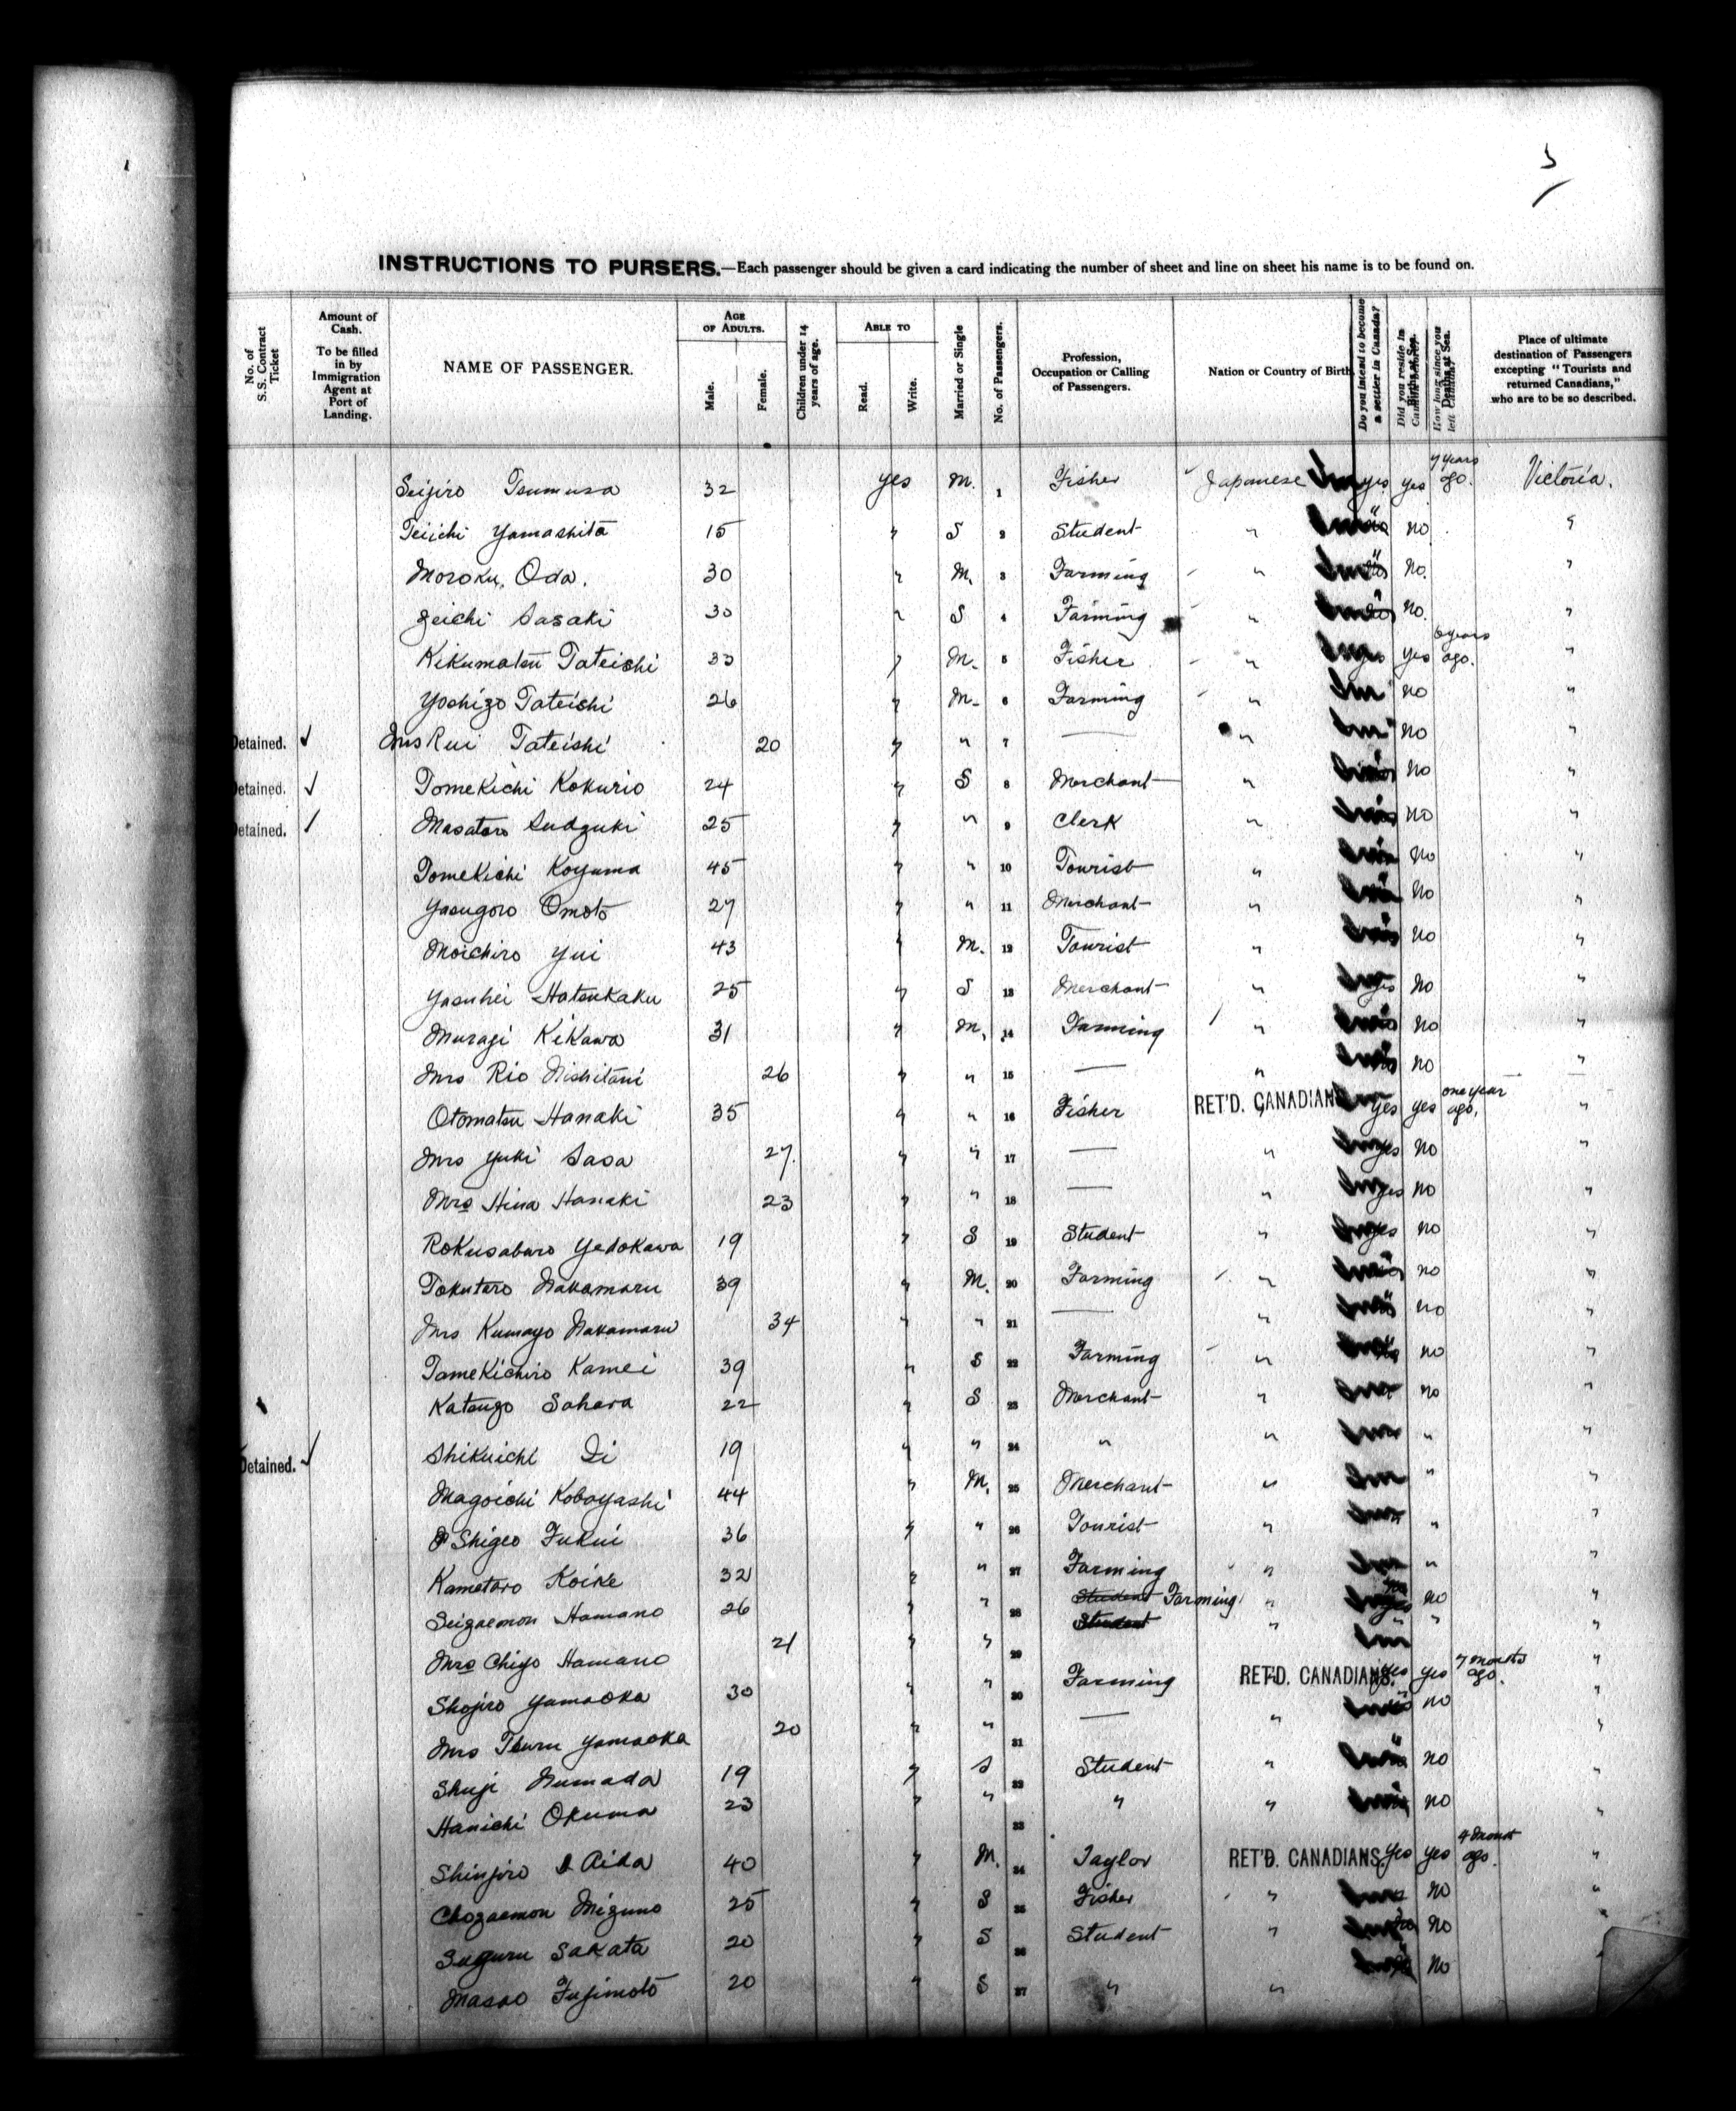 5
INSTRUCTIONS TO PURSERS.—Each passenger should be given a card indicating the number of sheet and line on sheet his name is to be found on.
No. of S.S. Contract Ticket
Amount of Cash. To be filled in by Immigration Agent at Port of Landing.
NAME OF PASSENGER.
AGE OF ADULTS.
Male.
Female.
Children under 14 years of age.
ABLE TO
Read.
Write.
Married or Single
No. of Passengers.
Profession, Occupation or Calling of Passengers.
Nation or Country of Birth
Do you intend to become a settler in Canada?
Did you reside in
Births at Sea.
How long since you left
Deaths at Sea.
Place of ultimate destination of Passengers excepting "Tourists and returned Canadians," who are to be so described.
Seijiro Tsumura 32 yes M. 1 Fisher Japanese yes yes 7 years ago. Victoria.
Teiichi Yamashita 15 " S 2 Student " " no "
Moroku Oda. 30 " M. 3 Farming " " no. "
Zeichi Sasaki 30 " S 4 Farming " " no. "
Kikumatsu Tateishi 33 " M. 5 Fisher " yes 6 years ago. "
Yoshizo Tateishi 26 " M. 6 Farming " no "
Detained. ✓ Mrs Rui Tateishi 20 " " 7 — " " no "
Detained. ✓ Tomekichi Kokurio 24 " S 8 Merchant " no "
Detained. ✓ Masataro Sudzuki 25 " " 9 Clerk " no "
Tomekichi Koyama 45 " " 10 Tourist " no "
Yasugoro Omoto 27 " " 11 Merchant " no "
Moichiro Yui 43 " M. 12 Tourist " no "
Yasuhei Hatsukaku 25 " S 13 Merchant " yes no "
Muragi Kikawa 31 " M. 14 Farming " no "
Mrs Rio Nishitani 26 " " 15 — " no "
Otomatsu Hanaki 35 " " 16 Fisher RET'D. CANADIANS yes yes one year ago. "
Mrs Yuki Sasa 27. " " 17 — " yes no "
Mrs Hina Hanaki 23 " " 18 — " yes no "
Rokusaburo Yedokawa 19 " S 19 Student " yes no "
Tokutaro Nakamaru 39 " M. 20 Farming " no "
Mrs Kumayo Nakamaru 34 " " 21 — " no "
Tamekichiro Kamei 39 " S 22 Farming " no "
Katsugo Sahara 22 " S 23 Merchant " no "
Detained. ✓ Shikuichi Ii 19 " " 24 " " " "
Magoichi Kobayashi 44 " M. 25 Merchant " " "
Shigeo Fukui 36 " " 26 Tourist " " "
Kametaro Koike 32 " " 27 Farming " " "
Seizaemon Hamano 26 " " 28 Student Farming " no "
Mrs Chiyo Hamano 21 " " 29 Student " " " "
Shojiro Yamaoka 30 " " 30 Farming RET'D. CANADIANS. yes yes 7 months ago. "
Mrs Tsuru Yamaoka 20 " " 31 — " no "
Shuji Numada 19 " S 32 Student " " no "
Hanichi Okuma 23 " " 33 " " " no "
Shinjiro Aida 40 " M. 34 Taylor RET'D. CANADIANS. yes yes ago. "
Chozaemon Mizuno 25 " S 35 Fisher " no "
Suguru Sakata 20 " S 36 Student " no "
Masao Fujimoto 20 " S 37 " " no "